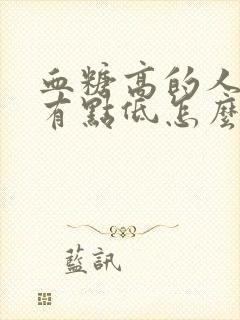 血糖高的人
有點低怎麼
藍訊